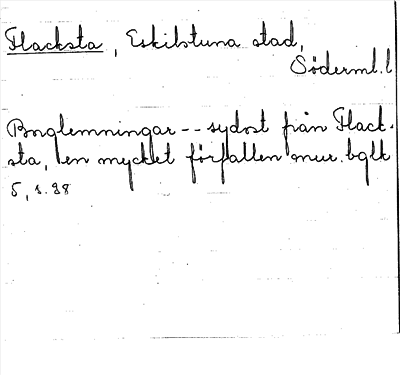 Flacksta, Eskilstuna stad,
Söderml.l
Borglemningar -- sydost från Flack-
sta, en mycket förfallen mur. bglk
5, s. 98